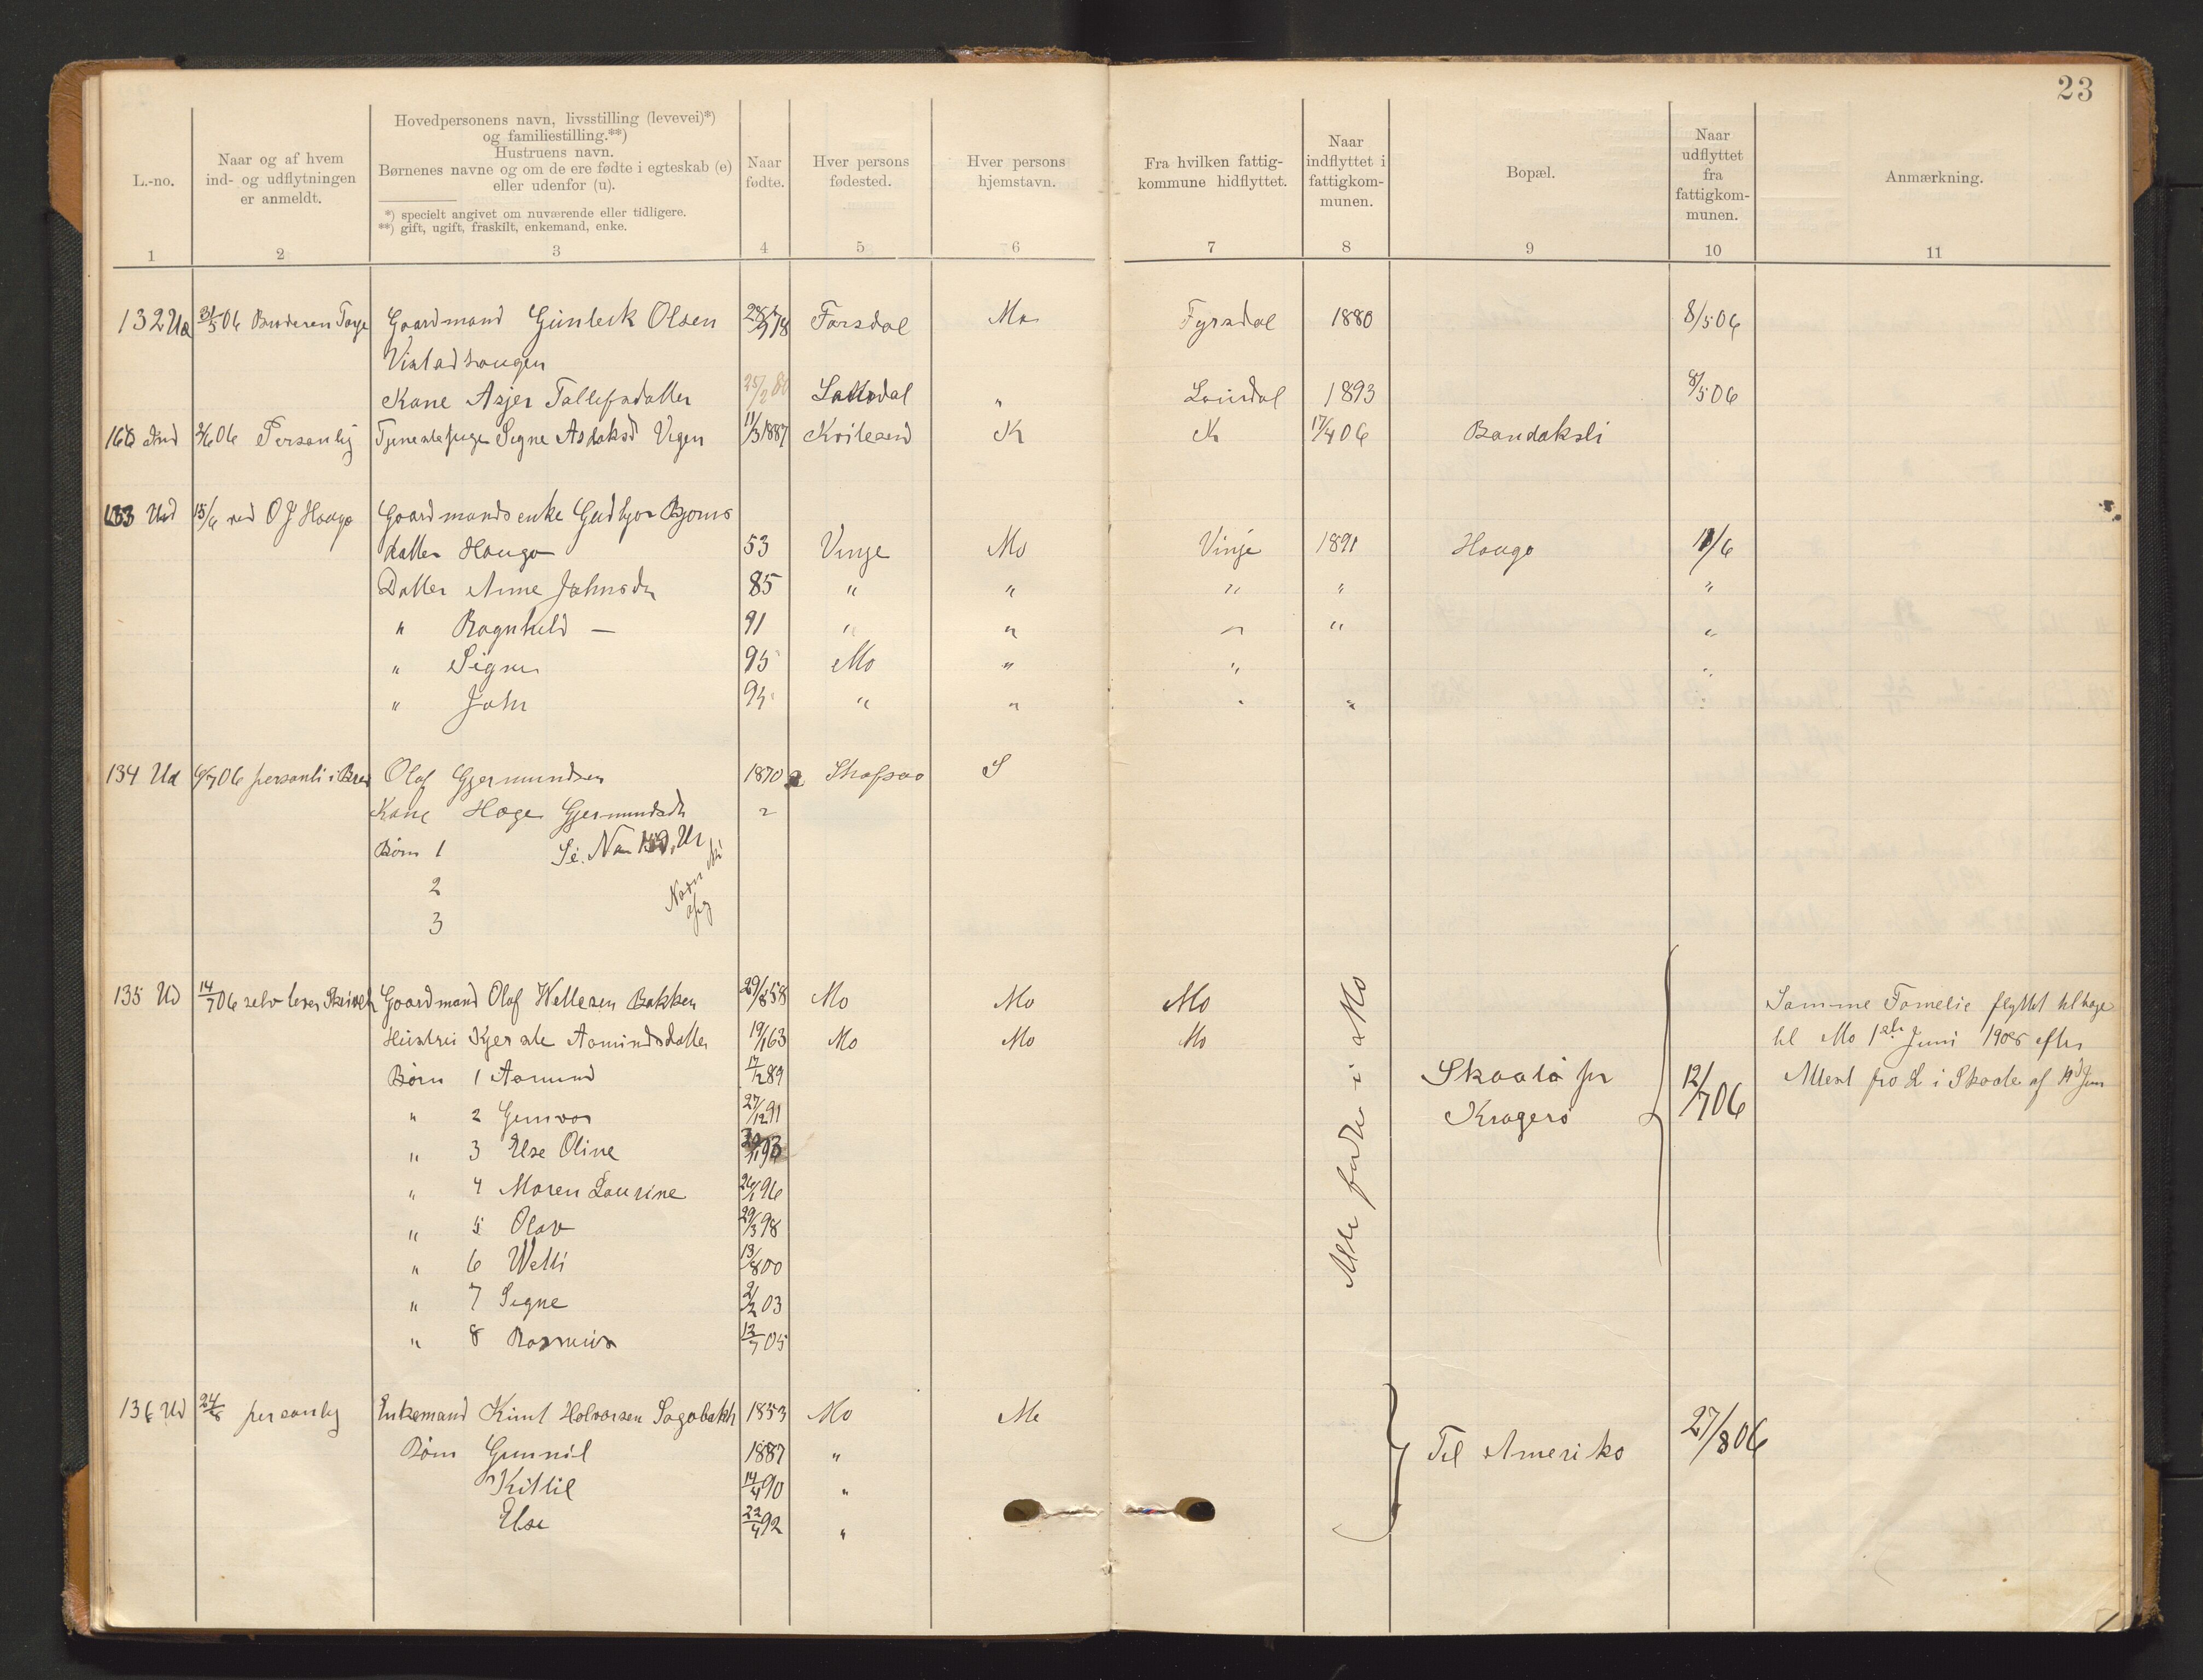 23
L.-no.
Naar og af hvem
ind- og udflytningen
er anmeldt.
Hovedpersonens navn, livsstilling (levevei)*)
og familiestilling.**)
Hustruens navn.
Børnenes navne og om de ere fødte i egteskab (e)
eller udenfor (u).
*) specielt angivet om nuværende eller tidligere.
**) gift, ugift, fraskilt, enkemand, enke.
Naar
fødte.
Hver persons
fødested.
Hver persons
hjemstavn.
Fra hvilken fattig-
kommune hidflyttet.
Naar
indflyttet i
fattigkom-
munen.
Bopæl.
Naar
udflyttet
fra
fattigkom-
munen.
Anmærkning.
1 2 3 4 5 6 7 8 9 10 11
132 Ud 31/5 06 Broderen Torge Gaardmand Gunleik Olsen 78 Mo Fyrsdal 1880 8/5 06
Kone Asjer Tallefsdatter 25/2 80 " 1893 8/5 06
Ind 2/6 06 Personlig Signe Aslaksd Vegen 11/3 1887 Kvitesend K K 17/4 06 Bandaksli
133 Ud 15/6 ved O J Haugo Gaardmandsenke Gudbjor Bjørns
datter Haugo 53 Vinje Mo Vinje 1891 Haugo /6
Datter Anne Johnsdr 85 " " " " "
" Ragnhild — 91 " " " " "
" Signe 95 Mo " " "
" John 95 " " " " "
134 Ud 6/7 06 personli i Brev Olaf Gjermundsen 1870 Skafsaa S
Kone Hæge Gjermundsdr
Børn 1 Se. No
2
3
135 Ud 14/7 06 selv Gaardmand Olaf Wetlesen Bakken 29/8 58 Mo Mo Mo
Hustru Kjerste Aamundsdatter 19/1 63 Mo Mo Mo
Børn 1 Aamund 17/2 89
" 2 Gunvor 27/12 91
" 3 Else Oline 93
" 4 Maren Laurine 26/1 96
" 5 Olav 29/3 98
" 6 Wetli 13/8 00
" 7 Signe 2/2 03
" 8 Rasmus 12/7 05
Alle fødte i Mo
Skaatø pr
Kragerø
12/7 06
Samme Famelie flyttet tilbage
til Mo 1ste Juni efter
Attest fra i Skaatø af
136 Ud 24/8 personlig Enkemand Knut Halvorsen Sagabakk 1853 Mo Mo
Børn Gunnil 1887 "
Kittil 14/4 90 "
Else 22/4 92 "
Til Amerika 27/8 06